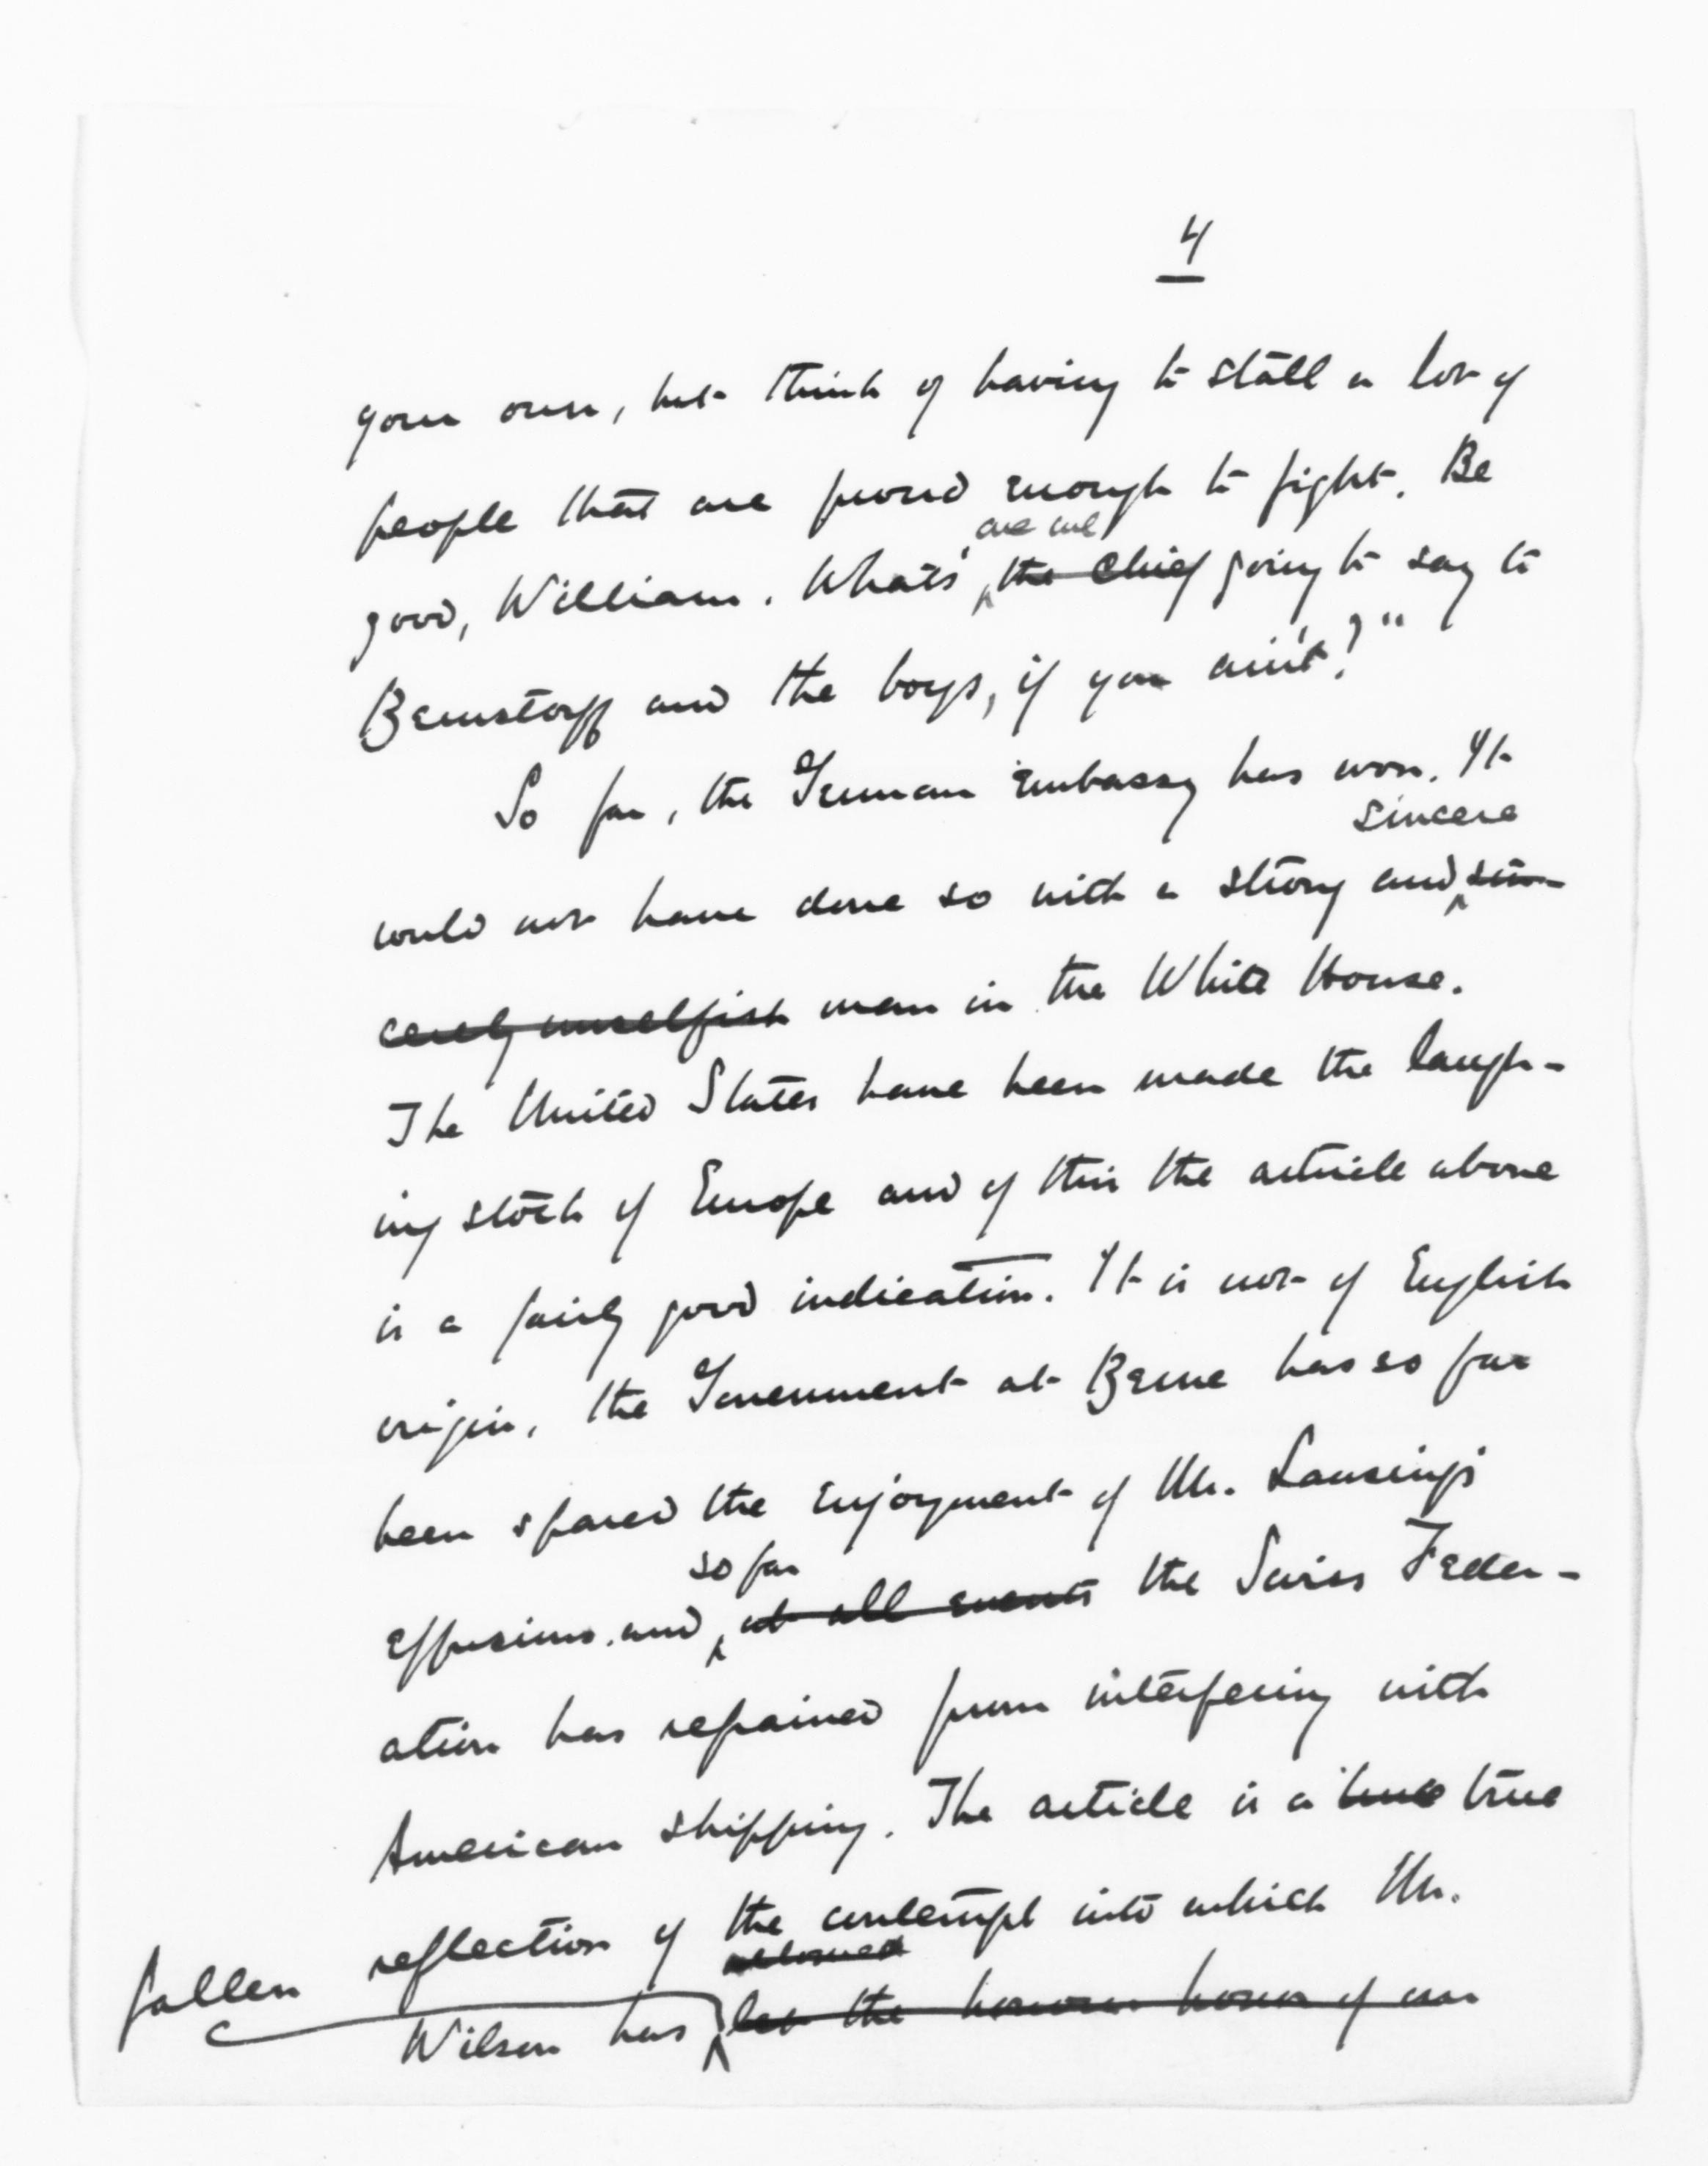 4
your own, but think of having to stall a lot of
people that are proud enough to fight. Be
are we
good, William. What's the Chief going to say to
Bernstorff and the boys, if you ain't?"
So far, the German Embassy has won. It
sincere
could not have done so with a strong and sin-
cerely unselfish man in the White House.
The United States have been made the laugh-
ing stock of Europe and of this the article above
is a fairly good indication. It is not of English
origin, the Government at Berne has so far
been spared the enjoyment of Mr. Lansing's
so far
effusions and at all events the Swiss Feder-
ation has refrained from interfering with
American shipping. The article is a true true
reflection of the contempt into which Mr.
allowed
fallen
Wilson has let the honour honor of our